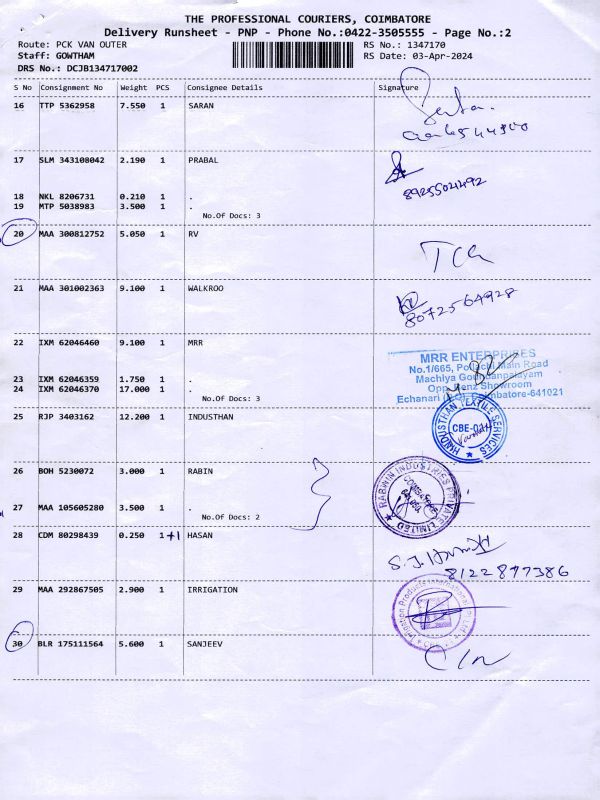 THE PROFESSIONAL COURIERS, COIMBATORE
Delivery Runsheet - PNP - Phone No.:0422-3505555 - Page No.:2
Route: PCK VAN OUTER RS No.: 1347170
Staff: GOWTHAM RS Date: 03-Apr-2024
DRS No.: DCJB134717002
S No Consignment No Weight PCS Consignee Details Signature
16 TTP 5362958 7.550 1 SARAN
17 SLM 343108042 2.190 1 PRABAL
18 NKL 8206731 0.210 1 .
19 MTP 5038983 3.500 1 .
No.Of Docs: 3
20 MAA 300812752 5.050 1 RV
21 MAA 301002363 9.100 1 WALKROO
8072564928
22 IXM 62046460 9.100 1 MRR
MRR ENTERPRISES
No.1/665, Pollachi Main Road
Machiya Goundanpalayam
Opp. Benz Showroom
Echanari (P.O), Coimbatore-641021
23 IXM 62046359 1.750 1 .
24 IXM 62046370 17.000 1 .
No.Of Docs: 3
25 RJP 3403162 12.200 1 INDUSTHAN
HINDUSTHAN TEXTILE SERVICES
26 BOH 5230072 3.000 1 RABIN
RABWIN INDUSTRIES PRIVATE LIMITED
27 MAA 105605280 3.500 1 .
No.Of Docs: 2
28 CDM 80298439 0.250 1 +1 HASAN
8122897386
29 MAA 292867505 2.900 1 IRRIGATION
Irrigation Products International
30 BLR 175111564 5.600 1 SANJEEV